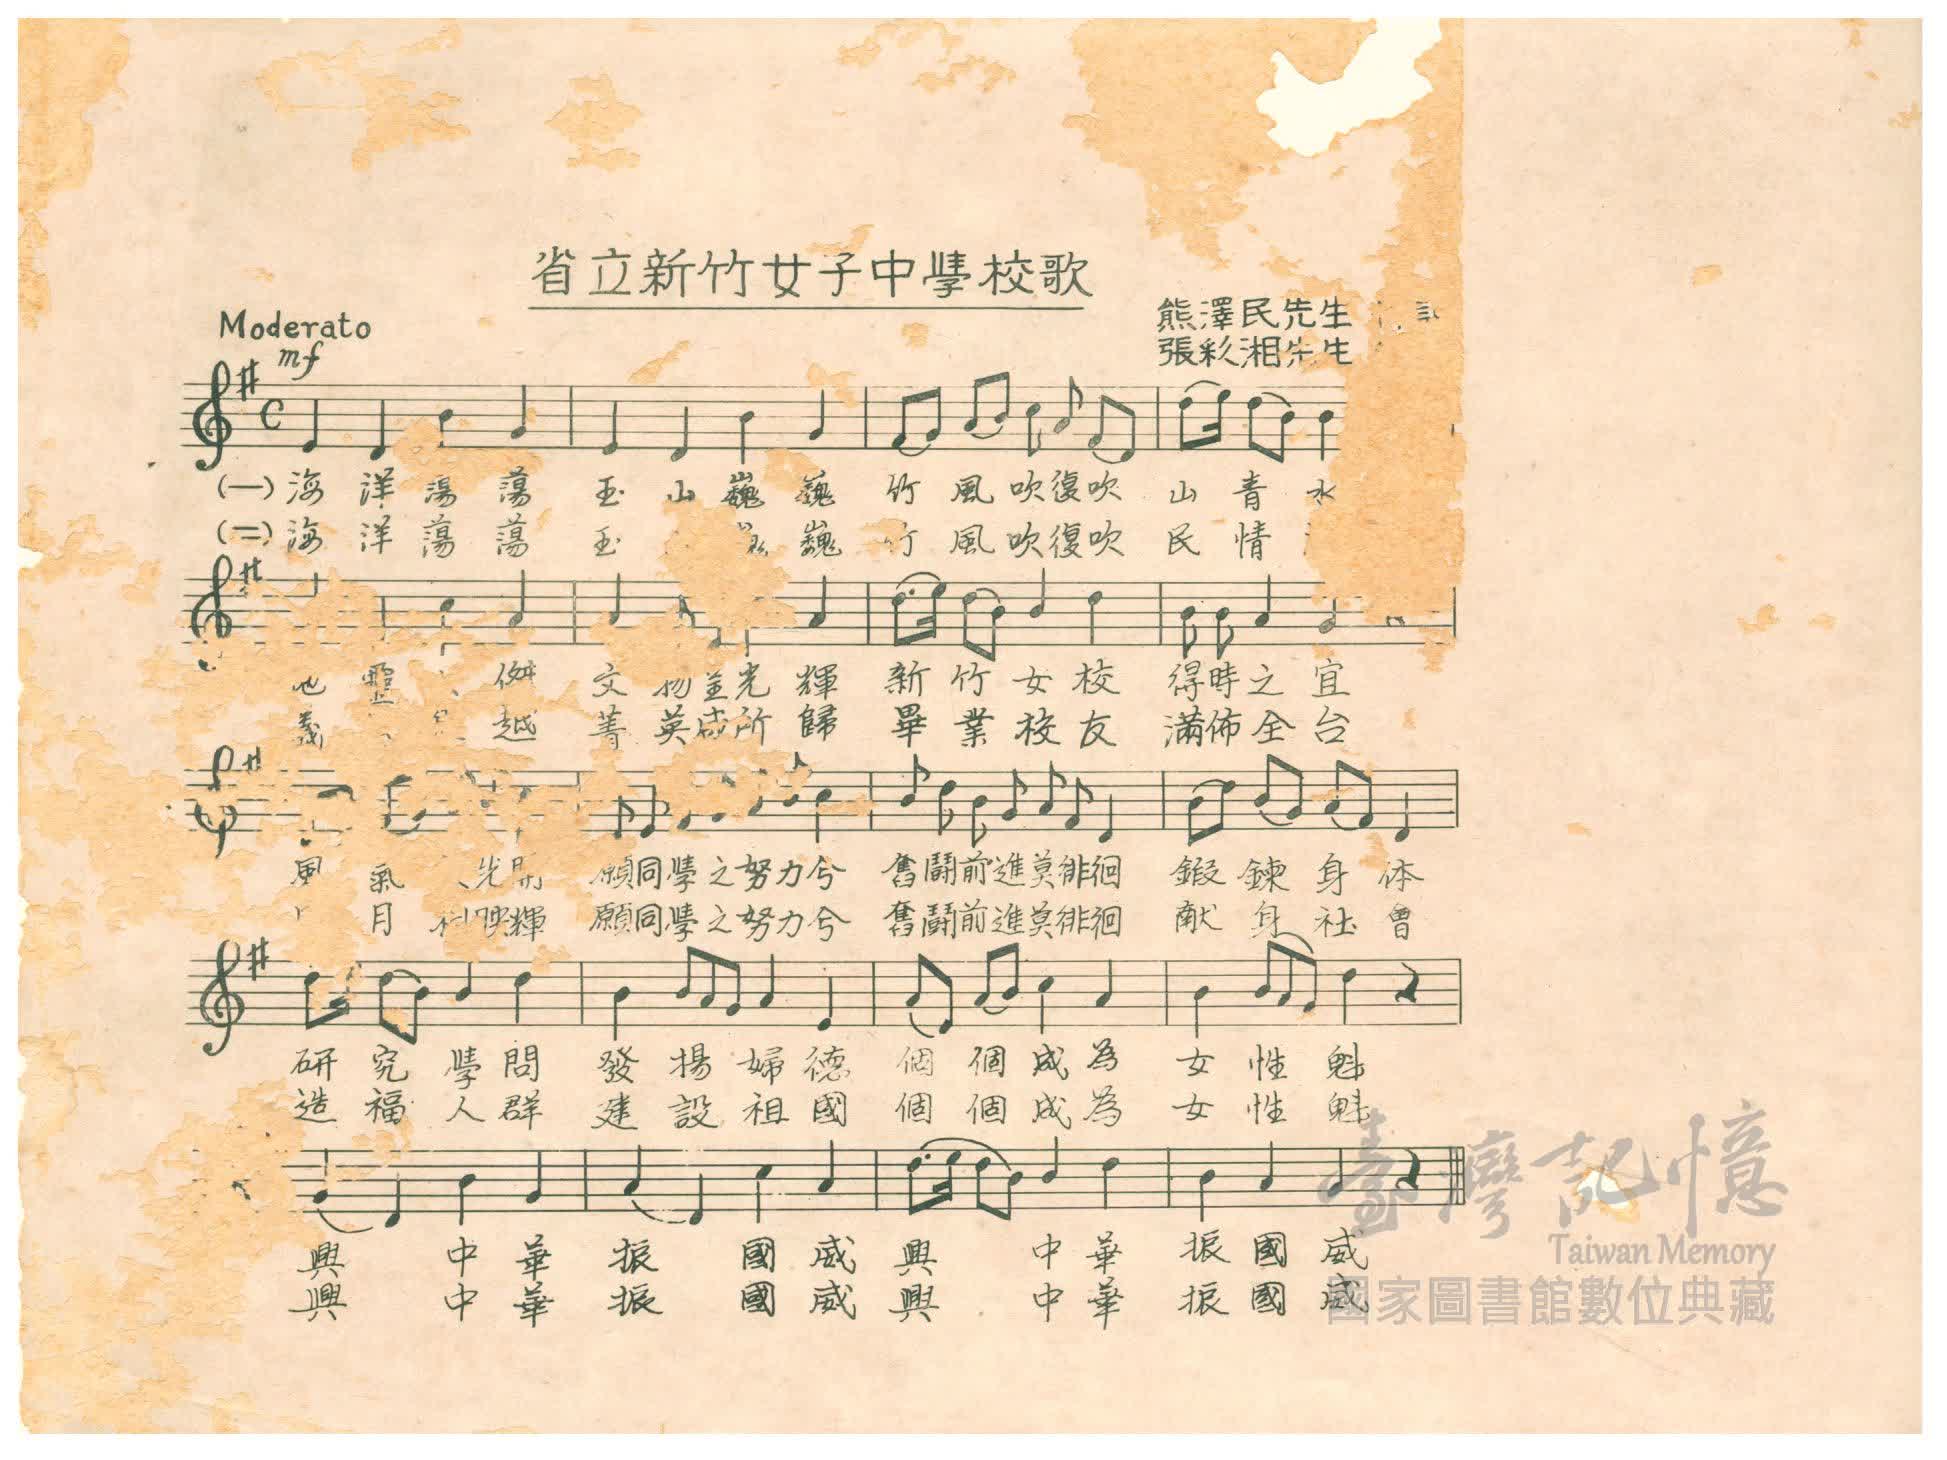 省立新竹女子中學校歌
Moderato
mf
熊澤民先生
張彩湘先生
(一)海洋蕩蕩 玉山巍巍 竹風吹復吹 山青水
(二)海洋蕩蕩 玉 巍 竹風吹復吹 民情
地靈 傑 文物並光輝 新竹女校 得時之宜
義 越 菁英咸所歸 畢業校友 滿佈全台
風氣 光開 願同學之努力兮 奮鬪前進莫徘徊 鍛鍊身体
月 映輝 願同學之努力兮 奮鬪前進莫徘徊 献身社會
研究學問 發揚婦德 個個成為 女性魁
造福人群 建設祖國 個個成為 女性魁
興中華 振國威 興中華 振國威
興中華 振國威 興中華 振國威
臺灣記憶
Taiwan Memory
國家圖書館數位典藏